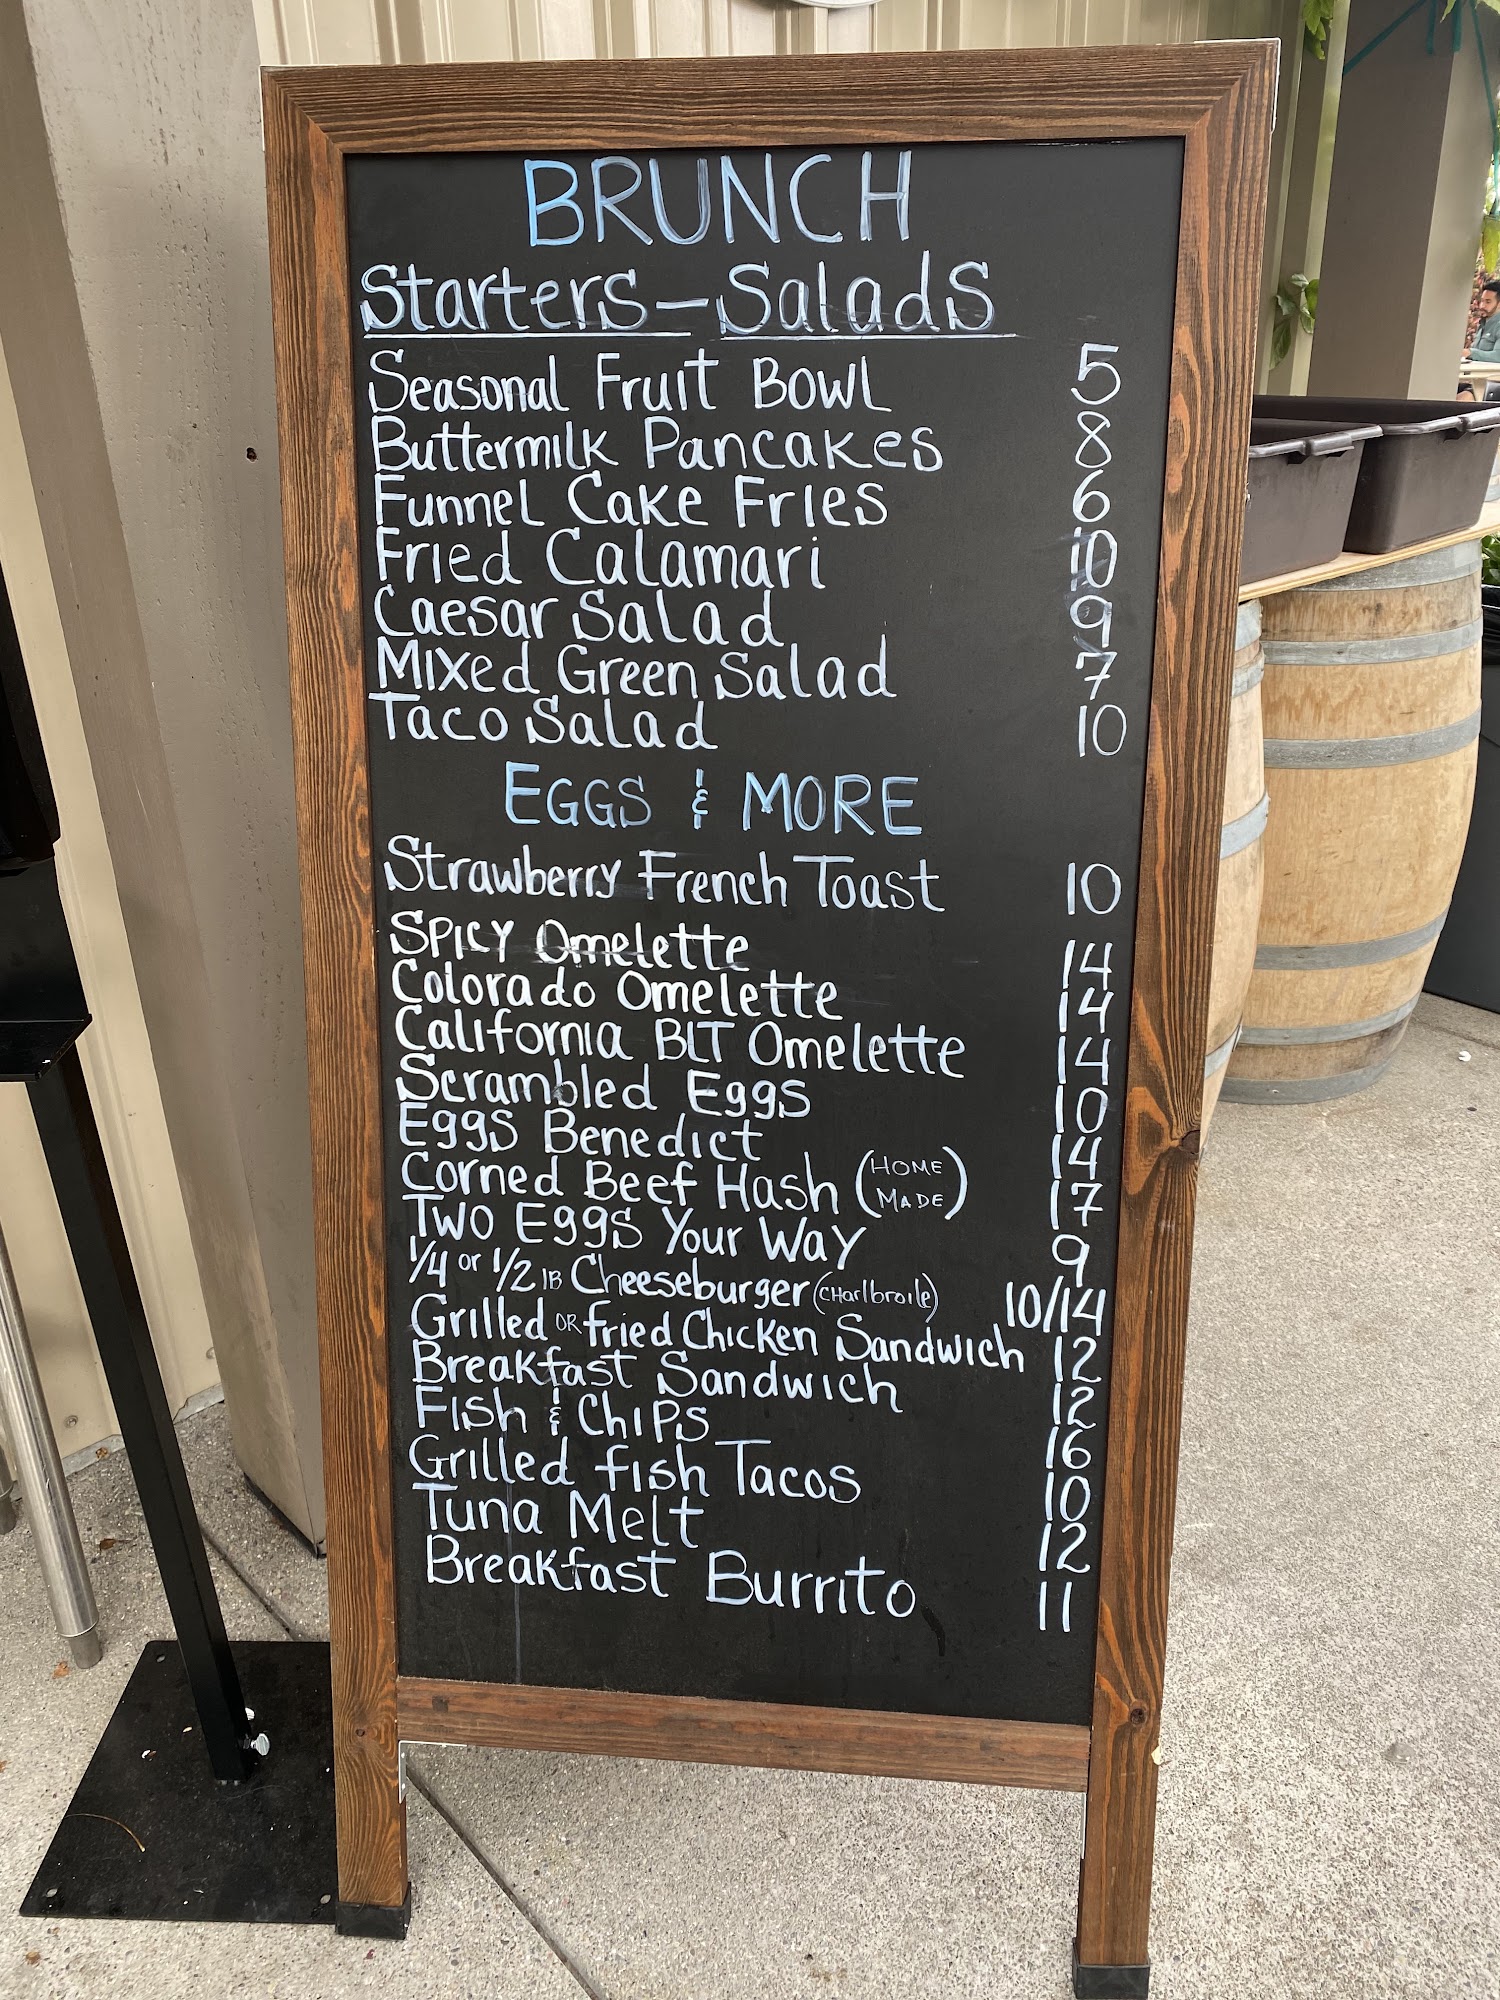 BRUNCH
Starters - Salads
Seasonal Fruit Bowl 5
Buttermilk Pancakes 8
Funnel Cake Fries 6
Fried Calamari 10
Caesar Salad 9
Mixed Green Salad 7
Taco Salad 10
EGGS & MORE
Strawberry French Toast 10
Spicy Omelette 14
Colorado Omelette 14
California BLT Omelette 14
Scrambled Eggs 10
Eggs Benedict 14
Corned Beef Hash (HOME MADE) 17
Two Eggs Your Way 9
1/4 or 1/2 lb Cheeseburger (charlbroile) 10/14
Grilled or fried Chicken Sandwich 12
Breakfast Sandwich 12
Fish & Chips 16
Grilled fish Tacos 10
Tuna Melt 12
Breakfast Burrito 11